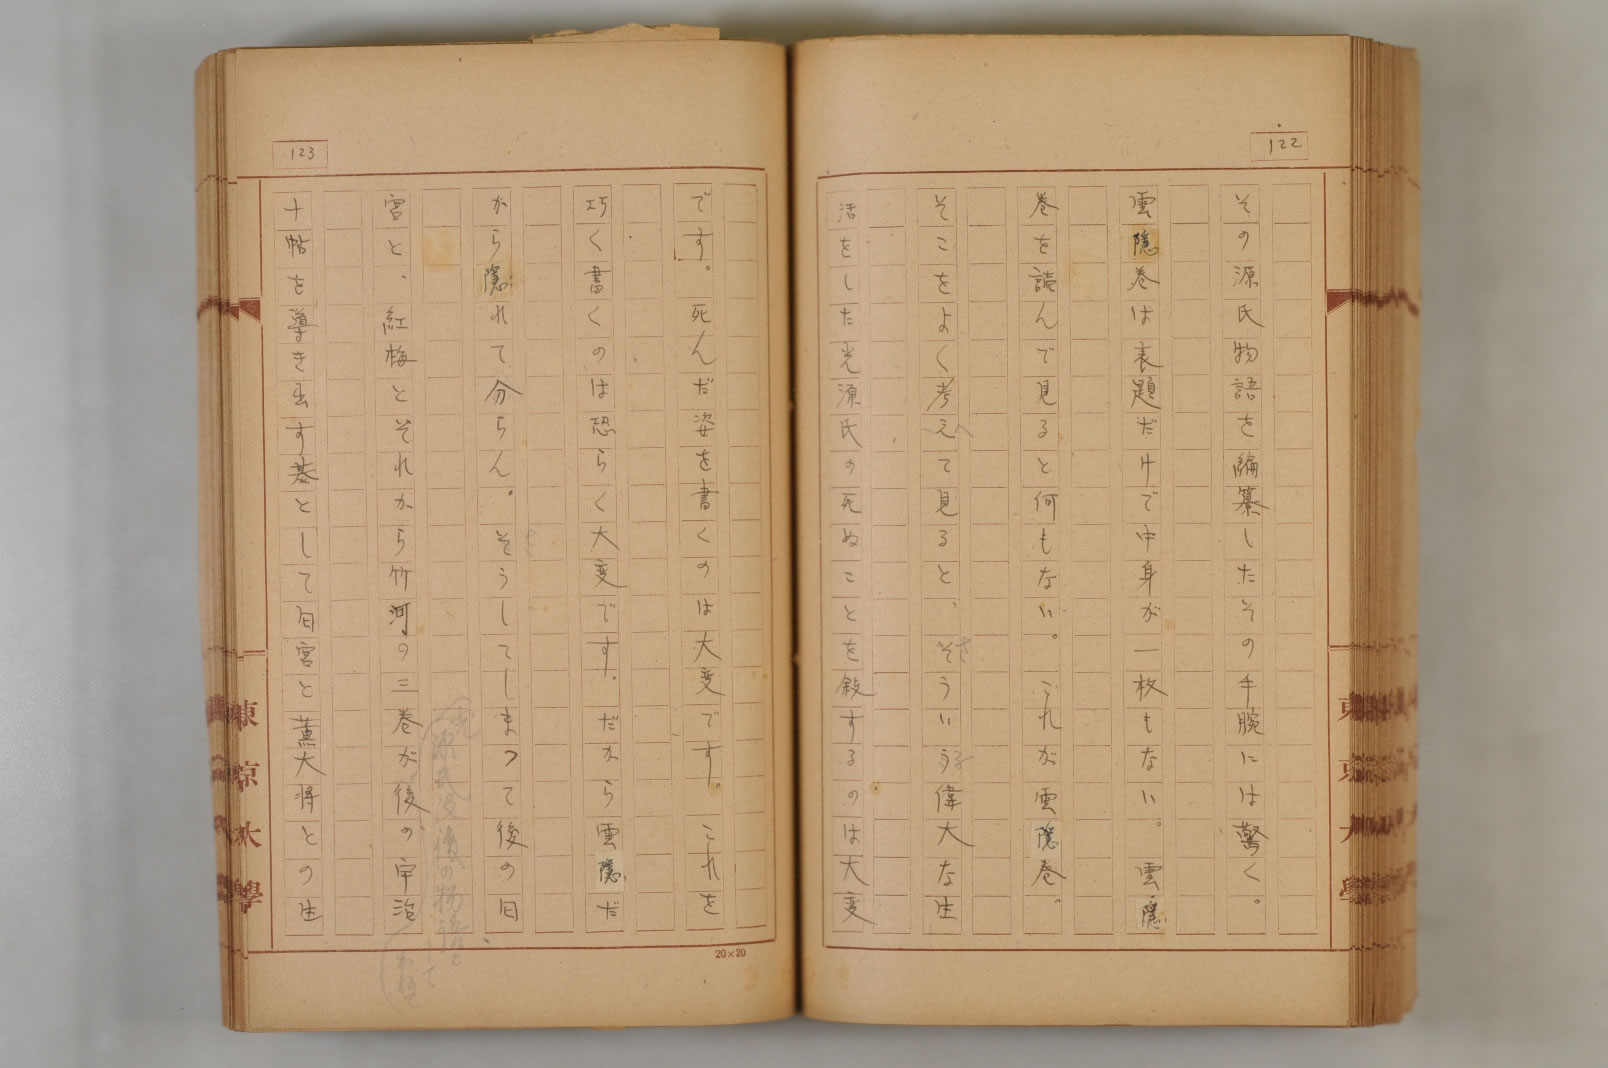 122
その源氏物語を編纂したその手腕には驚く。
雲隠巻は表題だけで中身が一枚もない。雲隠
巻を読んで見ると何もない。これが雲隠巻。
そこをよく考えて見ると、そういう偉大な生
へ
さ
活をした光源氏の死ぬことを叙するのは大変
123
です。死んだ姿を書くのは大変です。これを
巧く書くのは恐らく大変です。だから雲隠だ
から隠れて分らん。そうしてしまつて後の匂
宮と、紅梅とそれから竹河の三巻が後の宇治
源氏没後の物語として
十帖を導き出す基として匂宮と薫大将との生
20×20
東京大學
東京大學